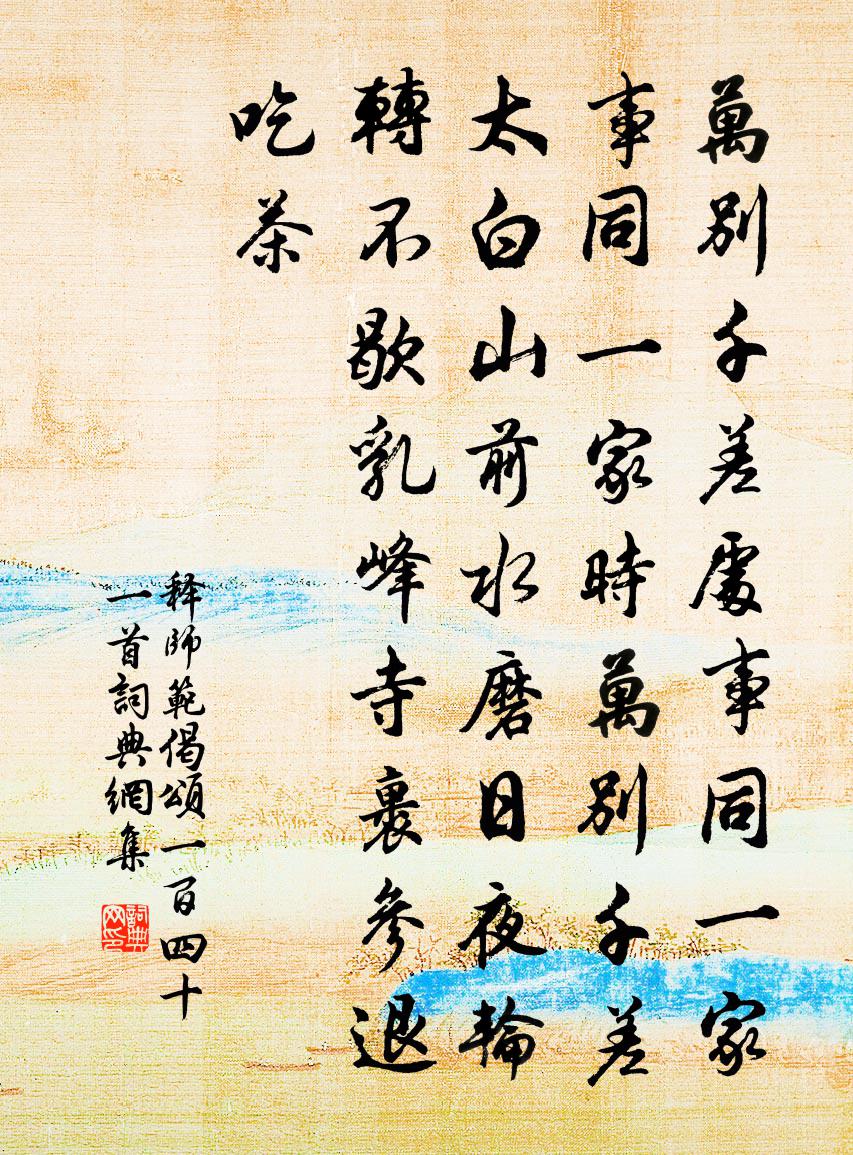 萬別千差處事同一家
事同一家時萬別千差
太白山前水磨日夜輪
轉不歇乳峰寺裏參退
吃茶
释師範偈頌一百四十
一首詞典網集
詞典网印